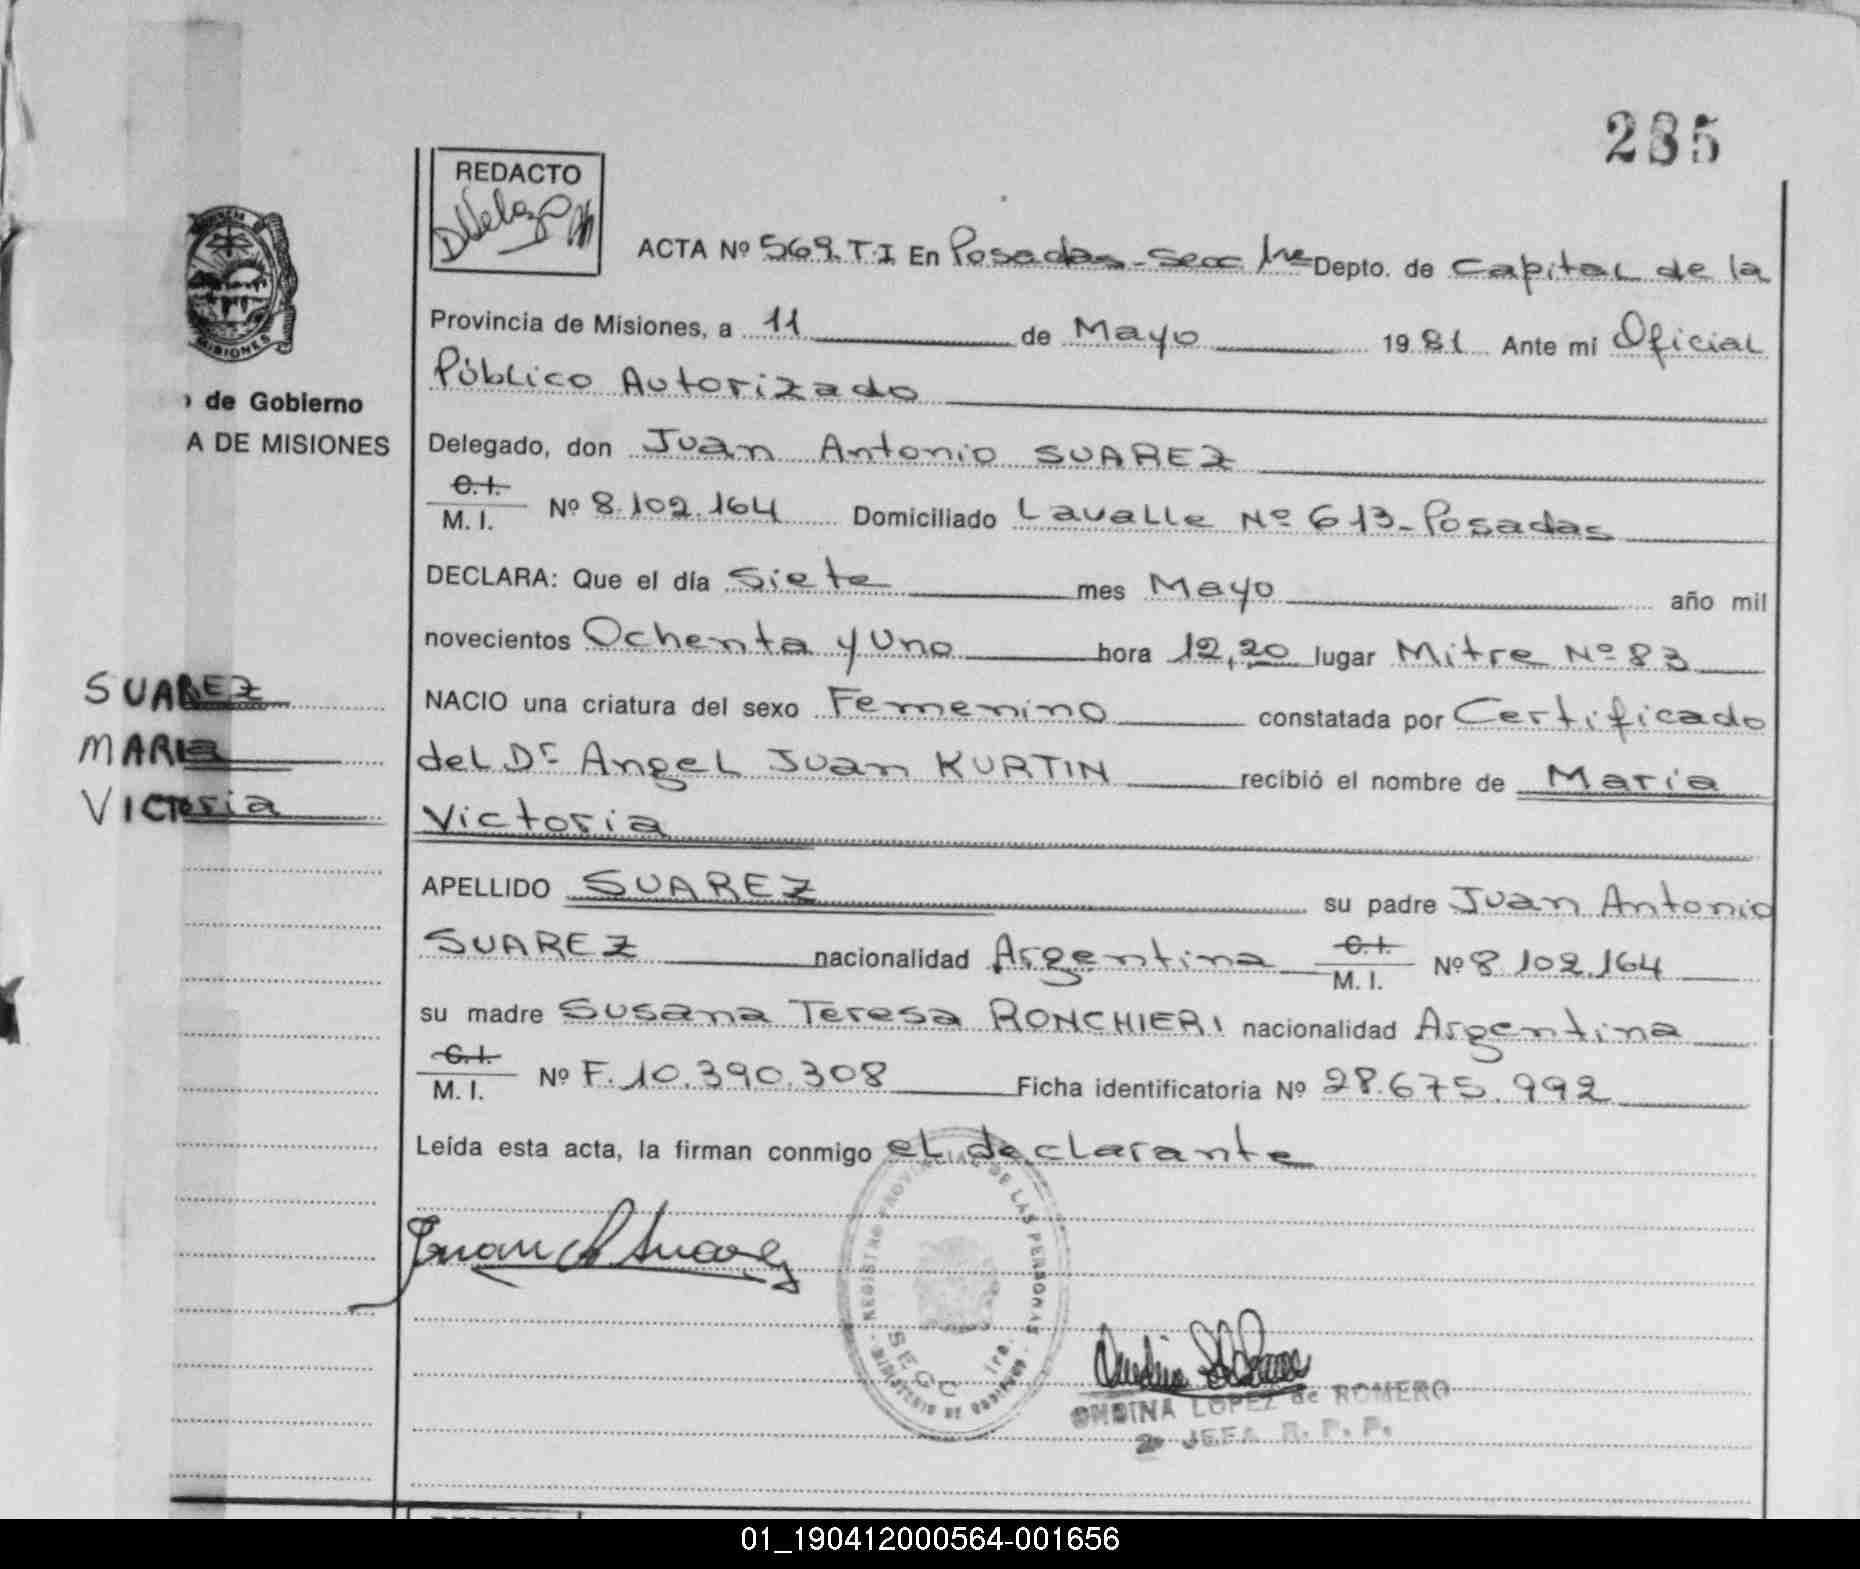 235
REDACTO
ACTA Nº 569.T.I En Posadas-Secc 1ra Depto. de Capital de la
MISIONES
Provincia de Misiones, a 11 de Mayo 1981 Ante mi Oficial
Público Autorizado
de Gobierno
A DE MISIONES
Delegado, don Juan Antonio SUAREZ
C.I.
M. I. Nº 8.102.164 Domiciliado Lavalle Nº 613-Posadas
DECLARA: Que el día Siete mes Mayo año mil
novecientos Ochenta y Uno hora 12,20 lugar Mitre Nº 83
SUAREZ
MARIa
VICToria
NACIO una criatura del sexo Femenino constatada por Certificado
del Dr Angel Juan KURTIN recibió el nombre de Maria
Victoria
APELLIDO SUAREZ su padre Juan Antonio
SUAREZ nacionalidad Argentina C.I. M. I. Nº 8.102.164
su madre Susana Teresa RONCHIERI nacionalidad Argentina
C.I.
M. I. Nº F. 10.390.308 Ficha identificatoria Nº 28.675.992
Leída esta acta, la firman conmigo el declarante
Juan A Suarez
REGISTRO PROVINCIAL DE LAS PERSONAS
SECC 1ra.
MINISTERIO DE GOBIERNO
LOPEZ de ROMERO
JEFA R. P. P.
01_190412000564-001656